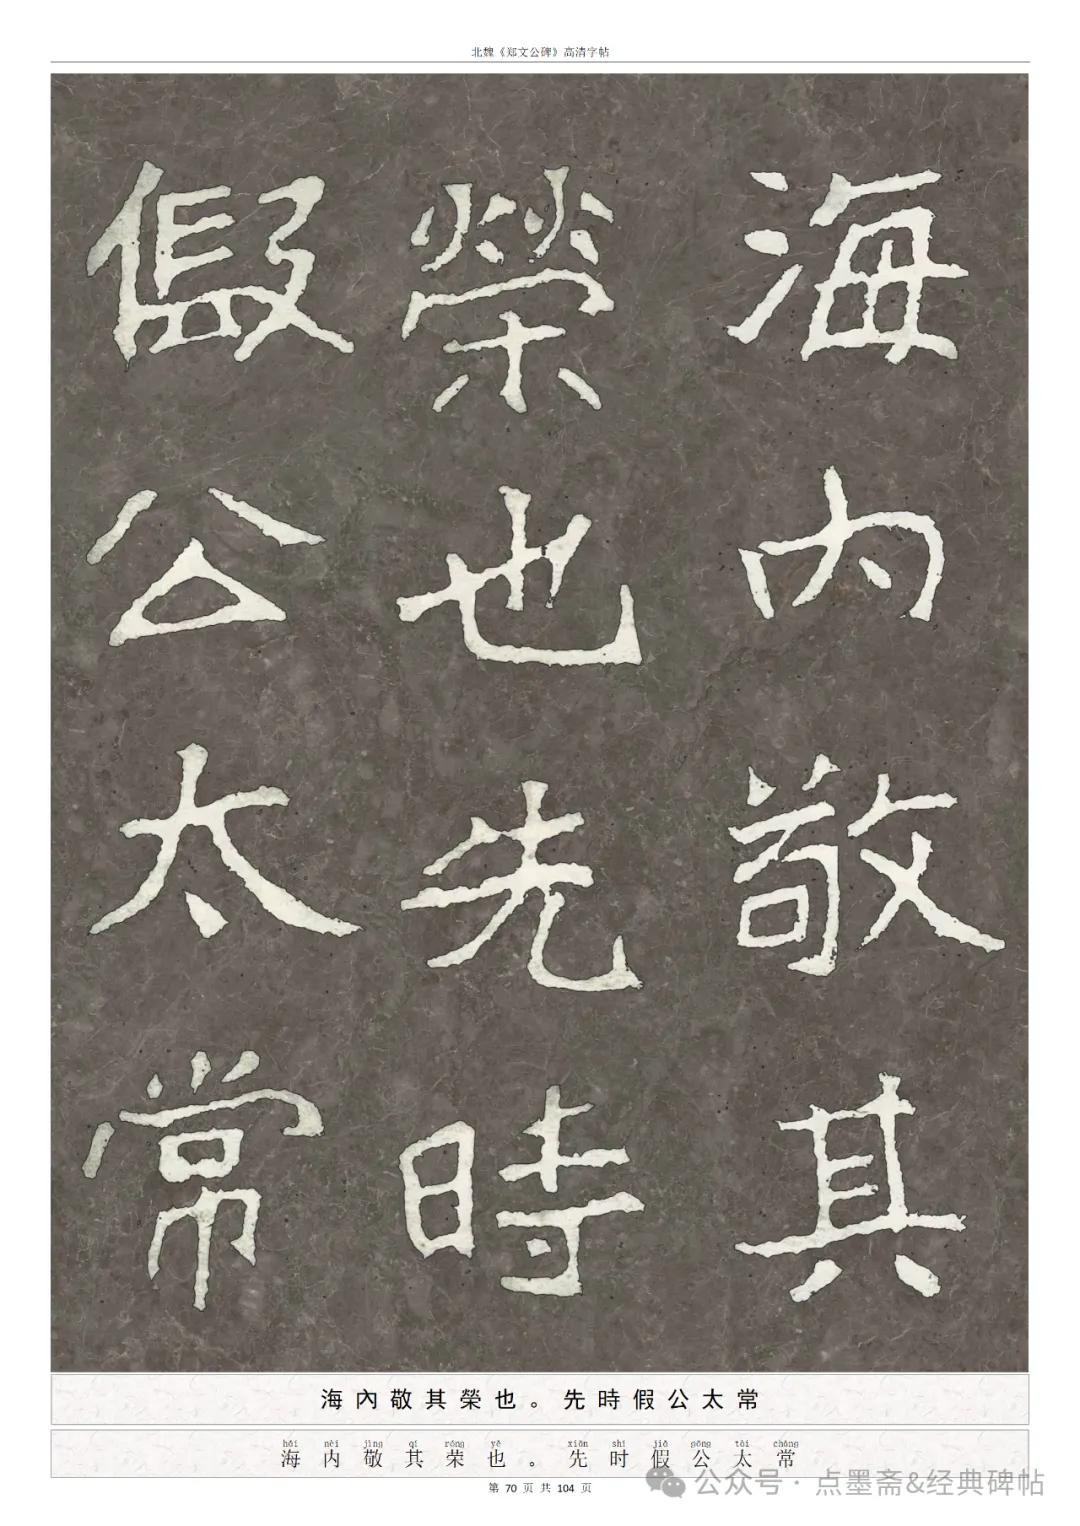 北魏《郑文公碑》高清字帖
海内敬其
榮也先時
假公太常
海內敬其榮也。先時假公太常
hǎi nèi jìng qí róng yě xiān shí jiǎ gōng tài cháng
海内敬其荣也。先时假公太常
第 70 页 共 104 页
公众号 · 点墨斋&经典碑帖